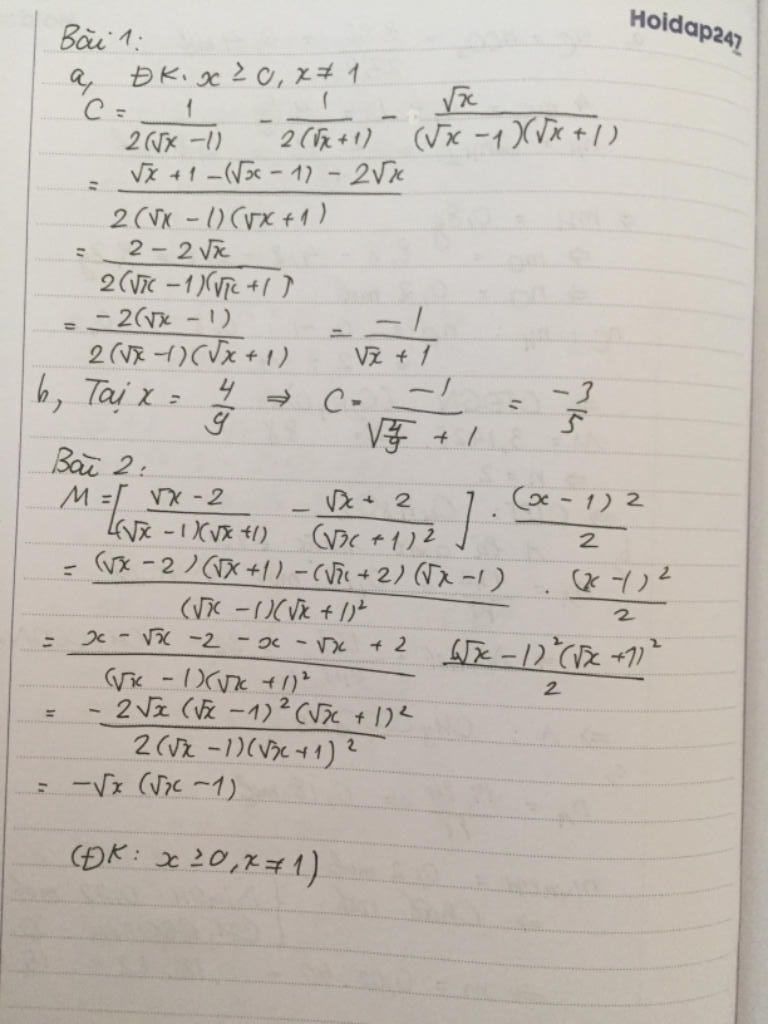 Hoidap247
Bài 1:
a, ĐK: x ≥ 0, x ≠ 1
C = 1/(2(√x - 1)) - 1/(2(√x + 1)) - √x/((√x - 1)(√x + 1))
= (√x + 1 - (√x - 1) - 2√x)/(2(√x - 1)(√x + 1))
= (2 - 2√x)/(2(√x - 1)(√x + 1))
= (-2(√x - 1))/(2(√x - 1)(√x + 1)) = (-1)/(√x + 1)
b, Tại x = 4/9 ⇒ C = (-1)/(√(4/9) + 1) = (-3)/5
Bài 2:
M = [(√x - 2)/((√x - 1)(√x + 1)) - (√x + 2)/((√x + 1)²)] . (x - 1)²/2
= ((√x - 2)(√x + 1) - (√x + 2)(√x - 1))/((√x - 1)(√x + 1)²) . (x - 1)²/2
= (x - √x - 2 - x - √x + 2)/((√x - 1)(√x + 1)²) ((√x - 1)²(√x + 1)²)/2
= (-2√x(√x - 1)²(√x + 1)²)/(2(√x - 1)(√x + 1)²)
= -√x(√x - 1)
(ĐK: x ≥ 0, x ≠ 1)